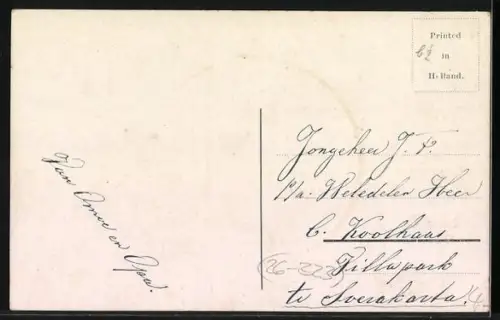 Printed
in
H-Rand.
6½
Van Omoe en Opa.
Jongeheer J. P.
p/a. Weledelen Heer
C. Koolhaas
Villapark
te Soerakarta.
(26-223)